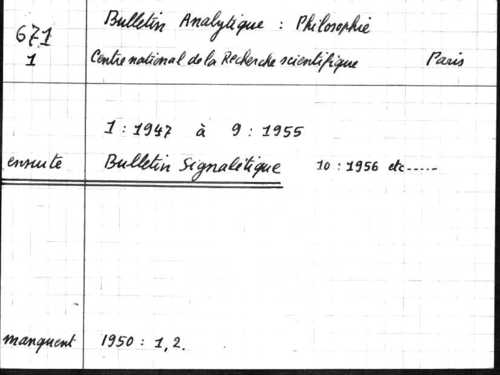 671 Bulletin Analytique : Philosophie
1 Centre national de la Recherche scientifique Paris
1 : 1947 à 9 : 1955
ensuite Bulletin Signalétique 10 : 1956 etc-----
manquent 1950 : 1, 2.